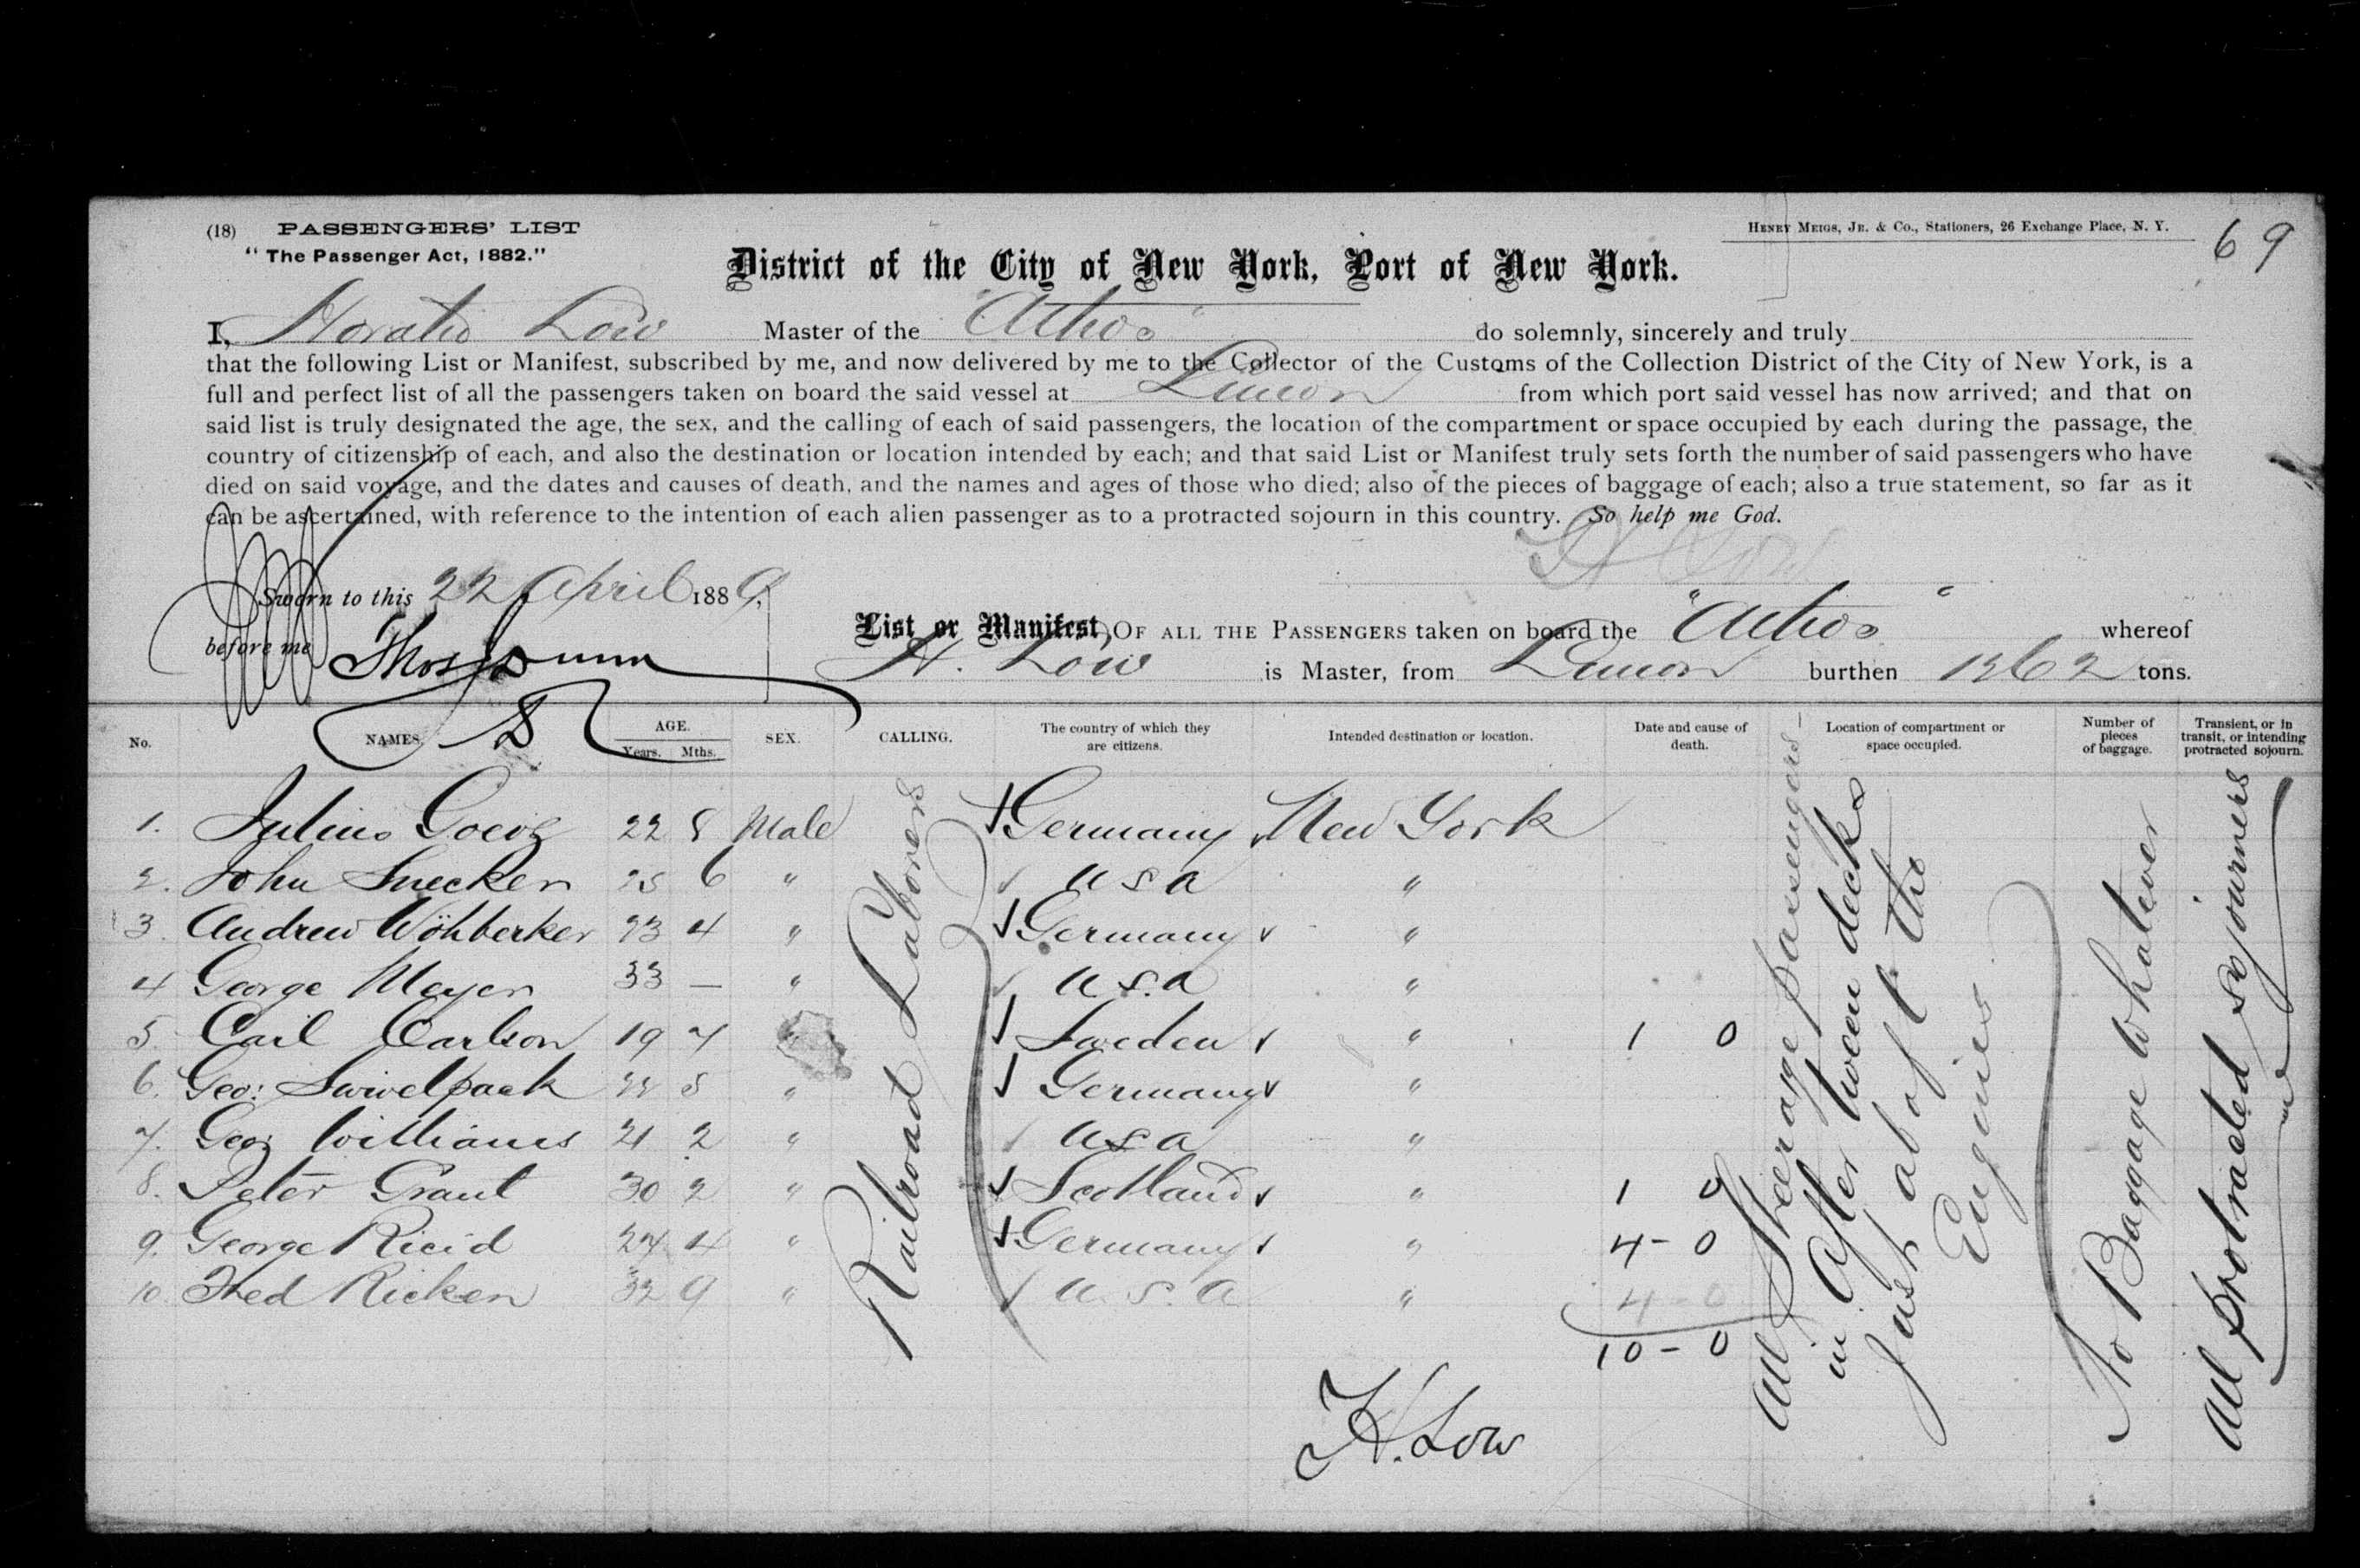 (18) PASSENGERS' LIST
HENRY MEIGS, JR. & CO., Stationers, 26 Exchange Place, N. Y.
69
"The Passenger Act, 1882."
District of the City of New York, Port of New York.
I, Horatio Low Master of the "Athos" do solemnly, sincerely and truly
that the following List or Manifest, subscribed by me, and now delivered by me to the Collector of the Customs of the Collection District of the City of New York, is a
full and perfect list of all the passengers taken on board the said vessel at Limon from which port said vessel has now arrived; and that on
said list is truly designated the age, the sex, and the calling of each of said passengers, the location of the compartment or space occupied by each during the passage, the
country of citizenship of each, and also the destination or location intended by each; and that said List or Manifest truly sets forth the number of said passengers who have
died on said voyage, and the dates and causes of death, and the names and ages of those who died; also of the pieces of baggage of each; also a true statement, so far as it
can be ascertained, with reference to the intention of each alien passenger as to a protracted sojourn in this country. So help me God.
H Low
Sworn to this 22 April 1889,
before me Thos
List or Manifest, OF ALL THE PASSENGERS taken on board the "Athos" whereof
H. Low is Master, from Limon burthen 1362 tons.
No. NAMES. AGE. Years. Mths. SEX. CALLING. The country of which they are citizens. Intended destination or location. Date and cause of death. Location of compartment or space occupied. Number of pieces of baggage. Transient, or in transit, or intending protracted sojourn.
1. Julius 22 8 Male Germany New York
2. John Snecker 25 6 " U S A "
3. Andrew Wöhberker 23 4 " Germany "
4 George Meyer 33 — " U.S.A "
5. Carl Carlson 19 7 " Sweden " 1 0
6. Geo: Swivelpack 22 5 " Germany "
7. Geo: Williams 21 2 " U S A "
8. Peter Grant 30 2 " Scotland " 1 0
9. George Ricid 24 4 " Germany " 4-0
10. Fred Ricken 32 9 " U.S.A " 4-0
10-0
Railroad Laborers
All Steerage passengers
in After tween decks
just abaft the
Engines
No Baggage Whatever
All protracted sojourners
H. Low